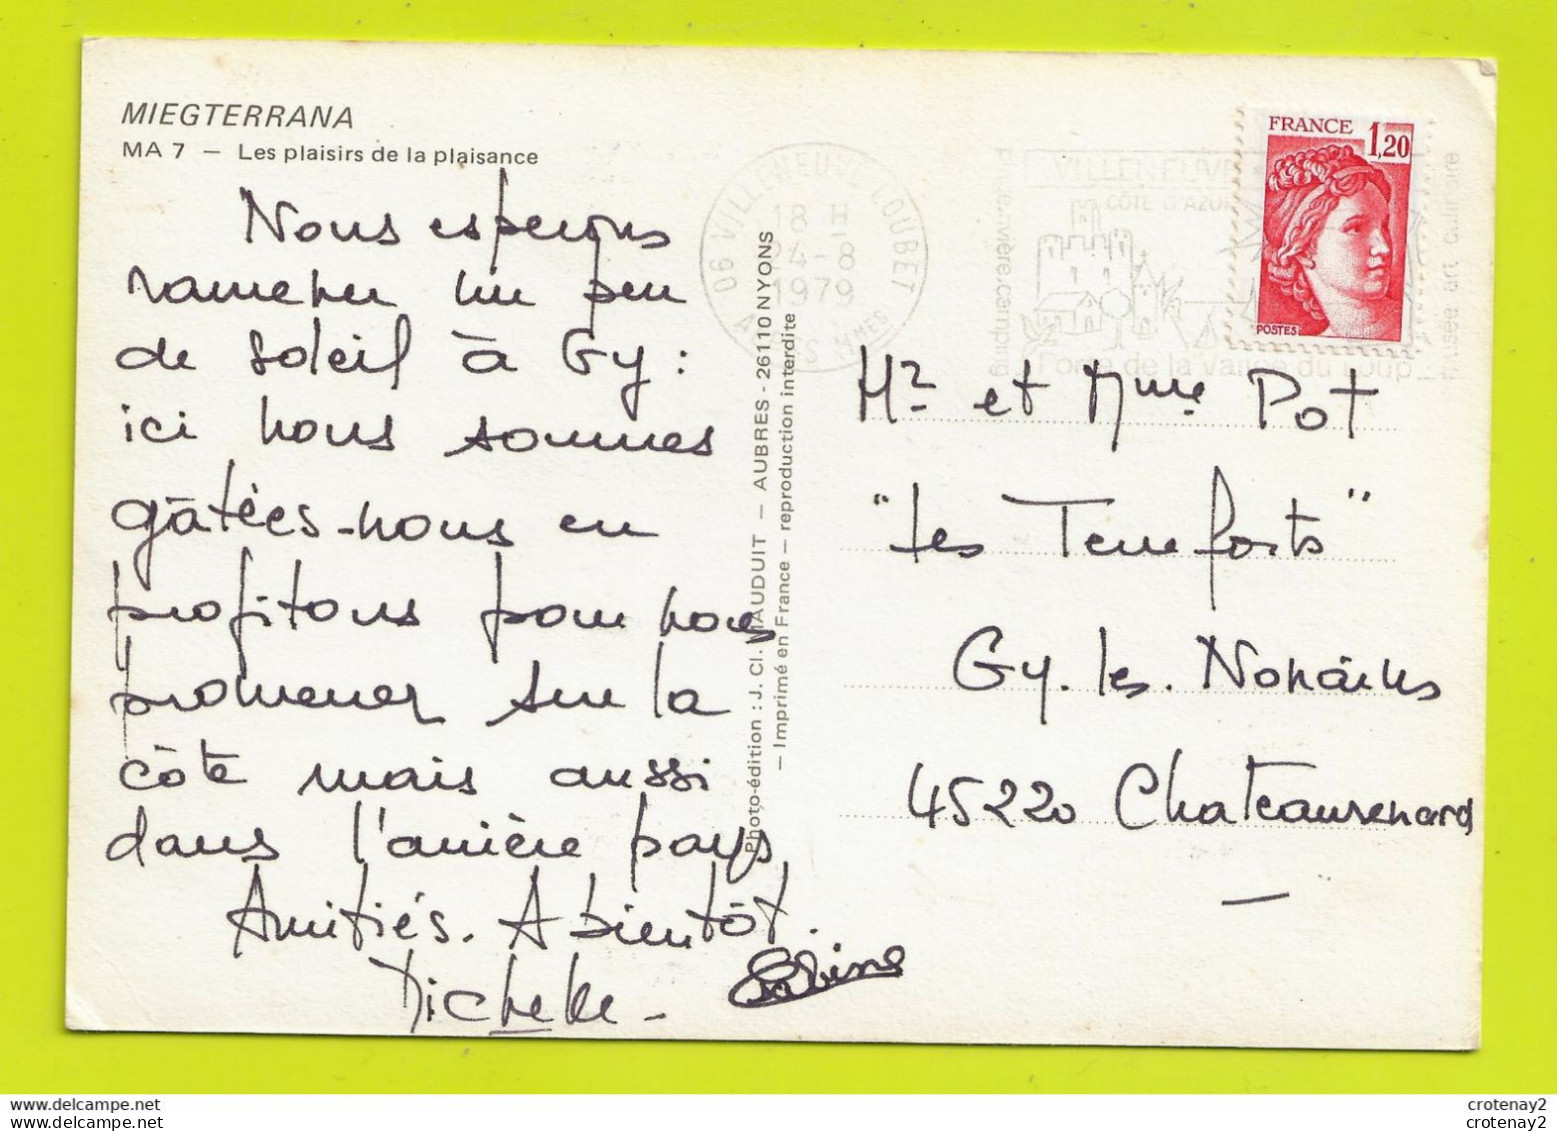 MIEGTERRANA
MA 7 — Les plaisirs de la plaisance
Nous esperons
ramener un peu
de soleil à Gy :
ici nous sommes
gâtées-nous en
profitons pour nous
promener sur la
côte mais aussi
dans l'arrière pays
Amitiés. A bientôt.
Michelle - Sabine
Photo-édition : J. Cl. MAUDUIT — AUBRES - 26110 NYONS
— Imprimé en France — reproduction interdite
06 VILLENEUVE-LOUBET
18 H
24-8
1979
ALPES MMES
VILLENEUVE
COTE D'AZUR
Porte de la Vallée du Loup
plage.rivière.camping
musée art culinaire
FRANCE 1,20
POSTES
Mr et Mme Pot
"Les Terre forts"
Gy. les. Nonains
45220 Chateaurenard
crotenay2
crotenay2
crotenay2
crotenay2